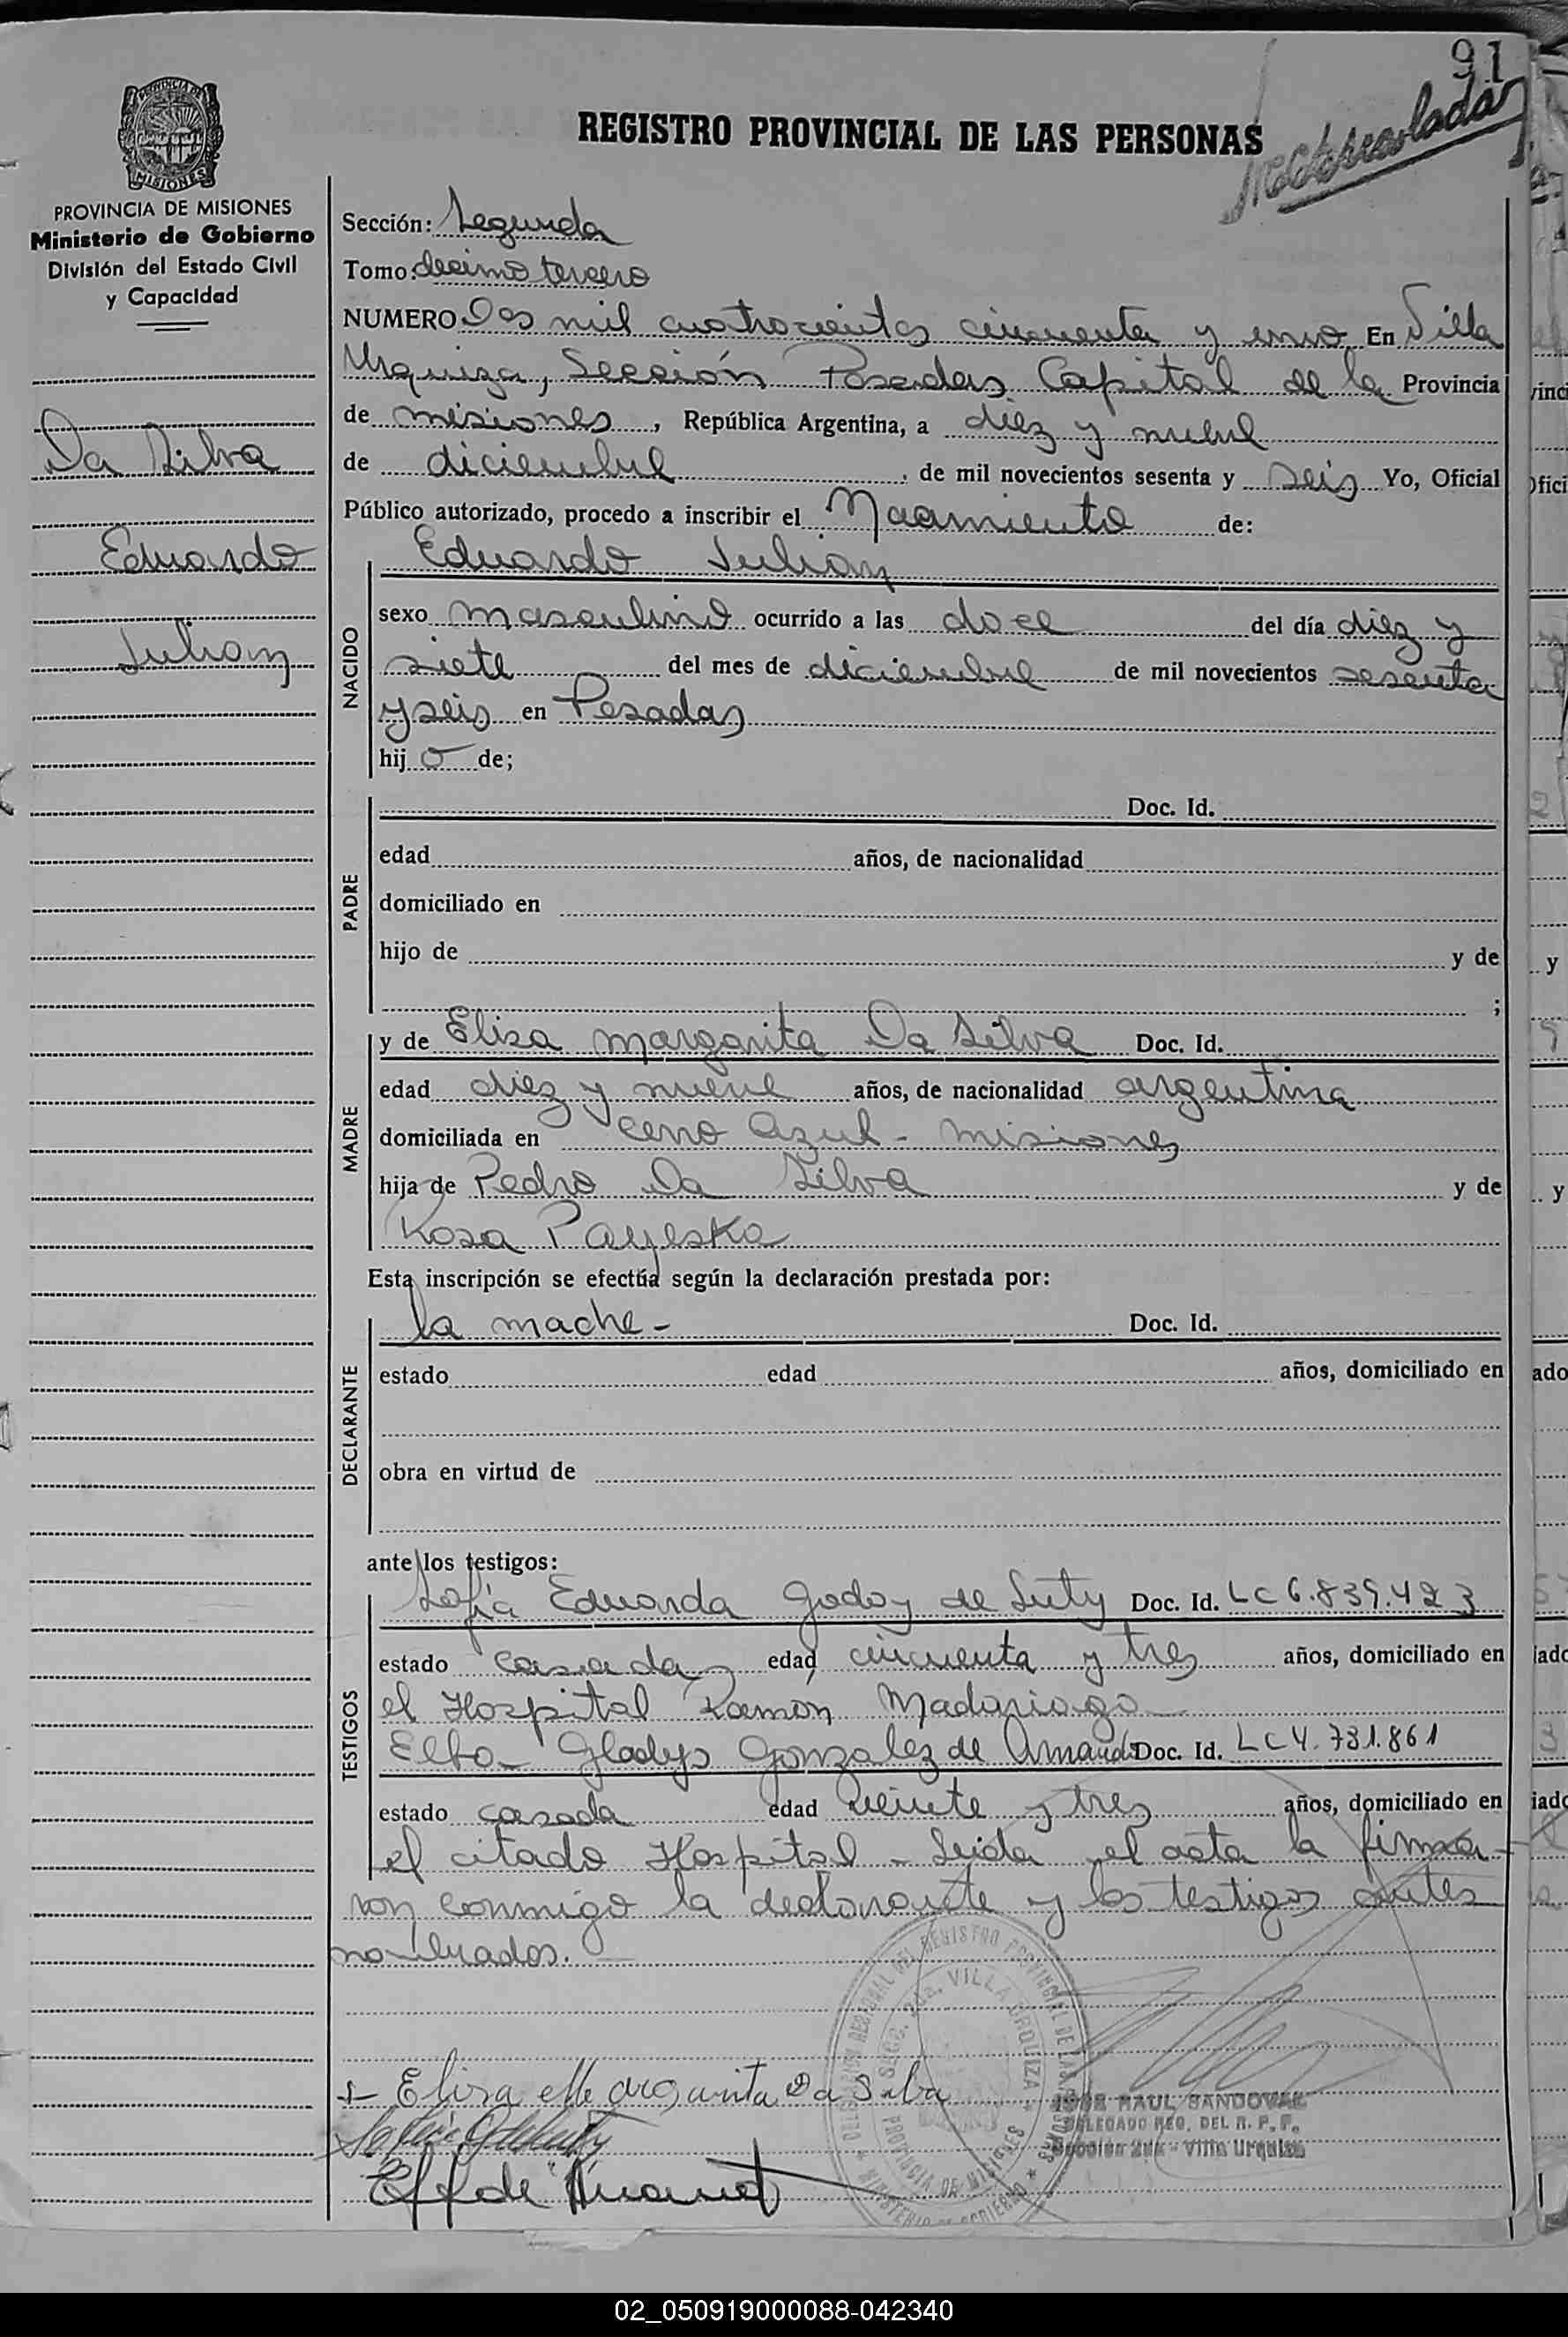 91
REGISTRO PROVINCIAL DE LAS PERSONAS
PROVINCIA DE MISIONES
MISIONES
PROVINCIA DE MISIONES
Ministerio de Gobierno
División del Estado Civil
y Capacidad
Da Silva
Eduardo
Julian
Sección: Segunda
Tomo: decimo tercero
NUMERO Dos mil cuatrocientos cincuenta y uno En Villa
Urquiza, Sección Posadas Capital de la Provincia
de misiones, República Argentina, a diez y nueve
de diciembre, de mil novecientos sesenta y seis Yo, Oficial
Público autorizado, procedo a inscribir el Nacimiento de:
NACIDO
Eduardo Julian
sexo masculino ocurrido a las doce del día diez y
siete del mes de diciembre de mil novecientos sesenta
y seis en Posadas
hijo de;
PADRE
Doc. Id.
edad años, de nacionalidad
domiciliado en
hijo de y de
;
MADRE
y de Elisa margarita Da Silva Doc. Id.
edad diez y nueve años, de nacionalidad argentina
domiciliada en Cerro Azul - misiones
hija de Pedro Da Silva y de
Rosa Payeska
Esta inscripción se efectúa según la declaración prestada por:
DECLARANTE
la madre - Doc. Id.
estado edad años, domiciliado en
obra en virtud de
ante los testigos:
TESTIGOS
Sofia Eduarda Godoy de Luty Doc. Id. LC 6.839.423
estado casada edad cincuenta y tres años, domiciliado en
el Hospital Ramón Madariaga
Elba Gladys Gonzalez de Doc. Id. LC 4.731.861
estado casada edad veinte y tres años, domiciliado en
el citado Hospital - Leida el acta la firma-
ron conmigo la declarante y los testigos antes
nombrados. -
DELEGACION REGIONAL DEL REGISTRO PROVINCIAL DE LAS PERSONAS
SECC. 2da. VILLA URQUIZA
PROVINCIA DE MISIONES
MINISTERIO DE GOBIERNO
Elisa Margarita Da Silva
RAUL SANDOVAL
DELEGADO REG. DEL R. P. P.
Sección 2da - Villa Urquiza
02_050919000088-042340